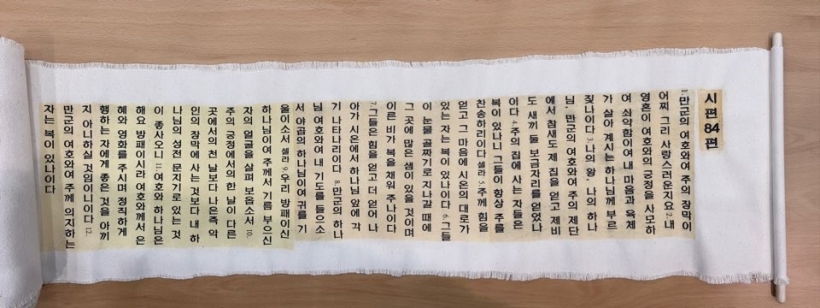 시편 84편
1.만군의 여호와여 주의 장막이
어찌 그리 사랑스러운지요 2. 내
영혼이 여호와의 궁정을 사모하
여 쇠약함이여 내 마음과 육체
가 살아 계시는 하나님께 부르
짖나이다 3. 나의 왕, 나의 하나
님, 만군의 여호와여 주의 제단
에서 참새도 제 집을 얻고 제비
도 새끼 둘 보금자리를 얻었나
이다 4.주의 집에 사는 자들은
복이 있나니 그들이 항상 주를
찬송하리이다 셀라 5. 주께 힘을
얻고 그 마음에 시온의 대로가
있는 자는 복이 있나이다 6. 그들
이 눈물 골짜기로 지나갈 때에
그 곳에 많은 샘이 있을 것이며
이른 비가 복을 채워 주나이다
7.그들은 힘을 얻고 더 얻어 나
아가 시온에서 하나님 앞에 각
기 나타나리이다 8. 만군의 하나
님 여호와여 내 기도를 들으소
서 야곱의 하나님이여 귀를 기
울이소서 셀라 9. 우리 방패이신
하나님이여 주께서 기름 부으신
자의 얼굴을 살펴 보옵소서 10.
주의 궁정에서의 한 날이 다른
곳에서의 천 날보다 나은즉 악
인의 장막에 사는 것보다 내 하
나님의 성전 문지기로 있는 것
이 좋사오니 11. 여호와 하나님은
해요 방패이시라 여호와께서 은
혜와 영화를 주시며 정직하게
행하는 자에게 좋은 것을 아끼
지 아니하실 것임이니이다 12.
만군의 여호와여 주께 의지하는
자는 복이 있나이다